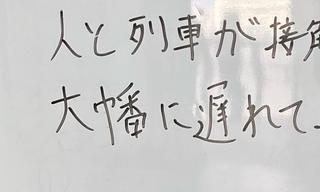 人と列車が接
大幡に遅れて